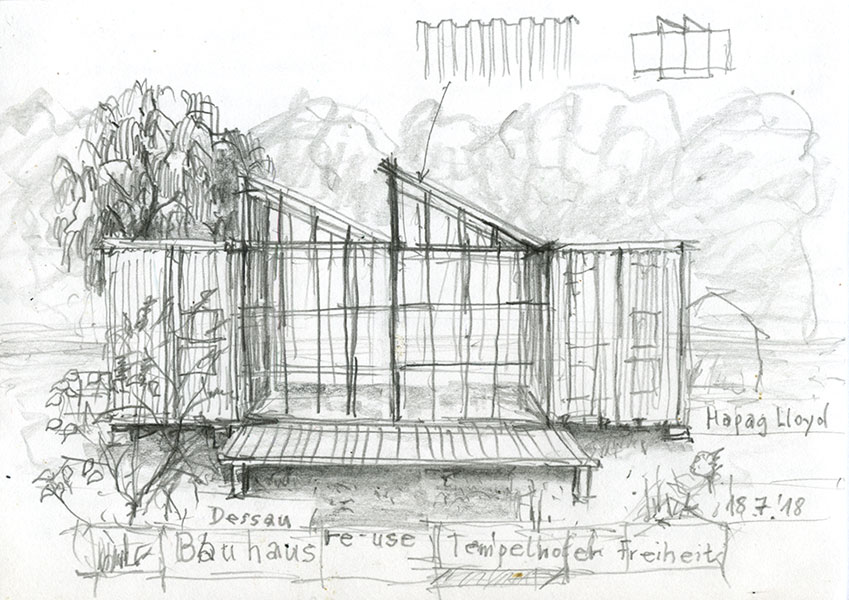 Hapag Lloyd
18.7.'18
Dessau
Bauhaus re-use Tempelhofer Freiheit